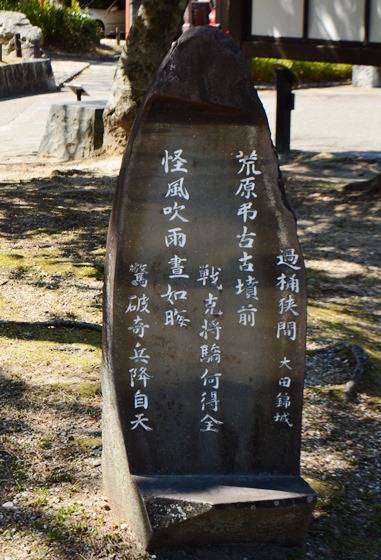 過桶狭間 大田錦城
荒原弔古古墳前
戦克将驕何得全
怪風吹雨晝如晦
驚破奇兵降自天